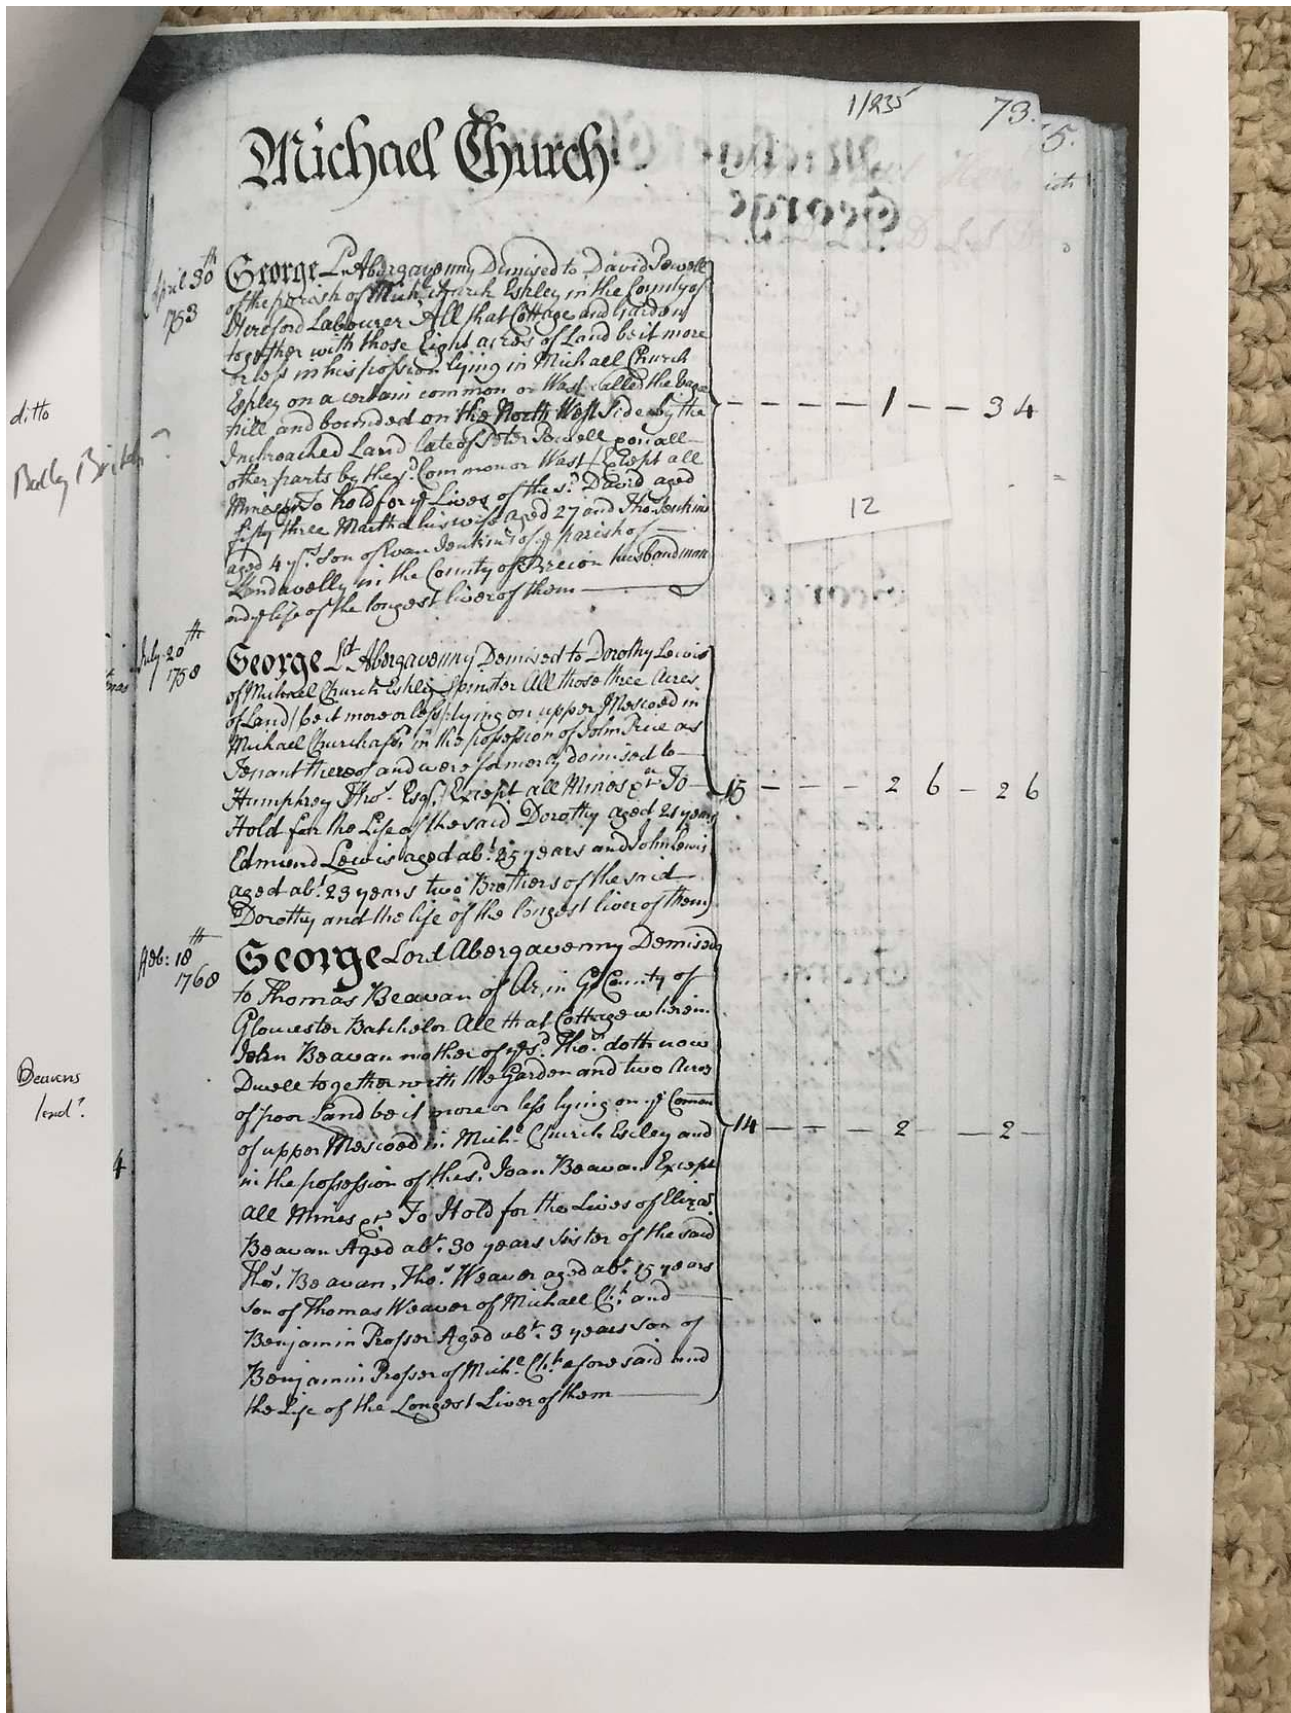 1/235
73.
5.
Michael Church
April 30th
1753
George Ld. Abergavenny Demised to David Powell
of the parish of Mich. Church Eskley in the County of
Hereford Labourer All that Cottage and Garden
together with those Eight acres of Land be it more
or less in his possion. lying in Michaell Church
Eskley on a certain common or Wast called the
hill and bounded on the North West Side by the
Incroached Land late of Peter Powell on all
other parts by the sd. Common or Wast / Except all
Mines &c To hold for ye Lives of the sd. David aged
fifty three Martha his wife aged 27 and Thos. Jenkins
aged 4 yrs. Son of Evan Jenkins of ye parish of
Landavelly in the County of Brecon husbandman
and ye life of the longest liver of them
1 3 4
ditto
?
12
July 20th
1758
George Ld. Abergavenny Demised to Dorothy Lewis
of Michael Church Eskley Spinster All those three Acres
of Land / be it more or less / lying on upper Mescoed in
Michael Church afsd. in the possession of John Price as
Tenant thereof and were formerly demised to
Humphrey Thos. Esqr. / Except all Mines &c To
Hold for the Life of the said Dorothy aged 21 years
Edmund Lewis aged abt. 25 years and John Lewis
aged abt. 23 years two Brothers of the said
Dorothy and the life of the longest liver of them
15 - - - 2 6 - 2 6
Feb: 18th
1768
George Lord Abergavenny Demised
to Thomas Beavan of in ye County of
Gloucester Batchelor All that Cottage wherein
John Beavan mother of ye sd. Thos. doth now
Dwell together with the Garden and two Acres
of poor Land be it more or less lying on ye Comon
of upper Mescoed in Miche. Church Escley and
in the possession of the sd. Joan Beavan Except
all Mines &c. To Hold for the Lives of Elizth.
Beavan Aged abt. 30 years sister of the said
Thos. Beavan, Thos. Weaver aged abt. 15 years
son of Thomas Weaver of Michall Ch. and
Benjamin Prosser Aged abt. 3 years son of
Benjamin Prosser of Miche. Ch. afore said and
the Life of the Longest Liver of them
14 - - - 2 - 2 -
Beavans
land?
4